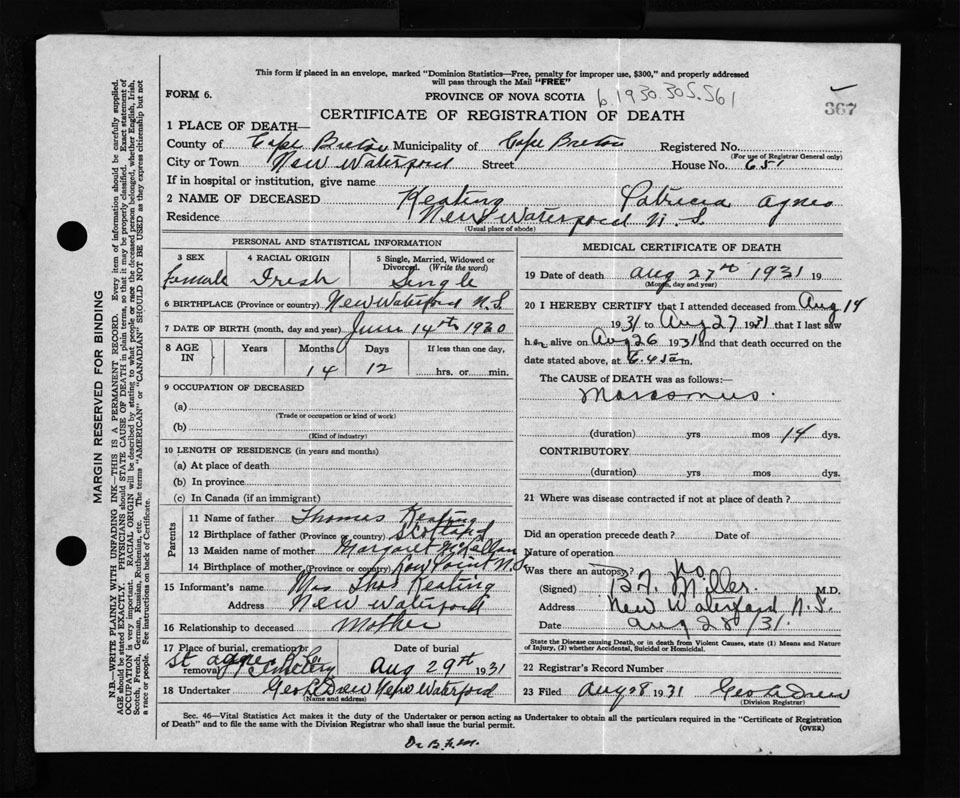 This form if placed in an envelope, marked "Dominion Statistics—Free, penalty for improper use, $300," and properly addressed
will pass through the Mail "FREE"
FORM 6.
PROVINCE OF NOVA SCOTIA b.1930.305.561
367
CERTIFICATE OF REGISTRATION OF DEATH
1 PLACE OF DEATH—
County of Cape Breton Municipality of Cape Breton Registered No.
(For use of Registrar General only)
City or Town New Waterford Street House No. 651
If in hospital or institution, give name
2 NAME OF DECEASED Keating Patricia Agnes
Residence New Waterford N. S.
(Usual place of abode)
PERSONAL AND STATISTICAL INFORMATION
3 SEX 4 RACIAL ORIGIN 5 Single, Married, Widowed or
Divorced. (Write the word)
female Irish Single
6 BIRTHPLACE (Province or country) New Waterford N.S.
7 DATE OF BIRTH (month, day and year) June 14th 1930
8 AGE IN Years Months Days If less than one day,
14 12 hrs. or min.
9 OCCUPATION OF DECEASED
(a)
(Trade or occupation or kind of work)
(b)
(Kind of industry)
10 LENGTH OF RESIDENCE (in years and months)
(a) At place of death
(b) In province
(c) In Canada (if an immigrant)
Parents
11 Name of father Thomas Keating
12 Birthplace of father (Province or country) Scotland
13 Maiden name of mother Margaret
14 Birthplace of mother (Province or country) Low Point N.S.
15 Informant's name Mrs Thos Keating
Address New Waterford
16 Relationship to deceased Mother
17 Place of burial, cremation or Date of burial
removal St Agnes Cemetery Aug 29st 1931
18 Undertaker Geo L Drew New Waterford
(Name and address)
MEDICAL CERTIFICATE OF DEATH
19 Date of death Aug 27th 1931 19
(Month, day and year)
20 I HEREBY CERTIFY that I attended deceased from Aug 14
1931 to Aug 27 1931 that I last saw
her alive on Aug 26 1931 and that death occurred on the
date stated above, at 6.45 a m.
The CAUSE OF DEATH was as follows:—
Marasmus.
(duration) yrs mos 14 dys.
CONTRIBUTORY
(duration) yrs mos dys.
21 Where was disease contracted if not at place of death ?
Did an operation precede death ? Date of
Nature of operation
Was there an autopsy? no
(Signed) Miller M.D.
Address New Waterford N.S.
Date Aug 28/31.
State the Disease causing Death, or in death from Violent Causes, state (1) Means and Nature
of Injury, (2) whether Accidental, Suicidal or Homicidal.
22 Registrar's Record Number
23 Filed Aug 28 1931 Geo L Drew
(Division Registrar)
Sec. 46—Vital Statistics Act makes it the duty of the Undertaker or person acting as Undertaker to obtain all the particulars required in the "Certificate of Registration
of Death" and to file the same with the Division Registrar who shall issue the burial permit.
(OVER)
MARGIN RESERVED FOR BINDING
N.B.—WRITE PLAINLY WITH UNFADING INK—THIS IS A PERMANENT RECORD. Every item of information should be carefully supplied.
AGE should be stated EXACTLY. PHYSICIANS should STATE CAUSE OF DEATH in plain terms, so that it may be properly classified. Exact statement of
OCCUPATION is very important. RACIAL ORIGIN will be described by stating to what people or race the deceased person belonged, whether English, Irish,
Scotch, French, German, Russian, Ruthenian, etc. The terms "AMERICAN" or "CANADIAN" SHOULD NOT BE USED as they express citizenship but not
a race or people. See instructions on back of Certificate.